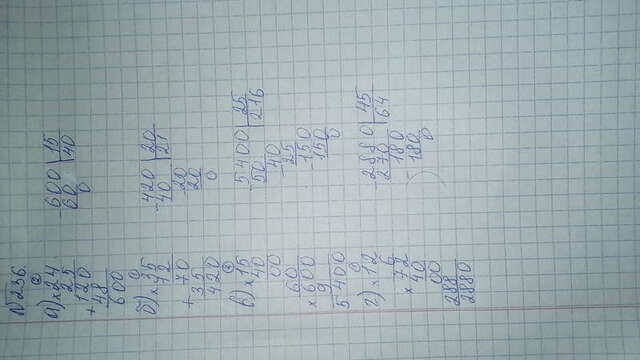 №236.
а) ×24
25
120
+48
600
-600 | 15
60 | 40
0
б) ×35
12
70
+35
420
-420 | 20
40 | 21
-20
20
0
в) ×15
40
00
60
×600
9
5400
-5400 | 25
50 | 216
-40
25
-150
150
0
г) ×12
6
×72
40
00
288
2880
-2880 | 45
270 | 64
180
180
0